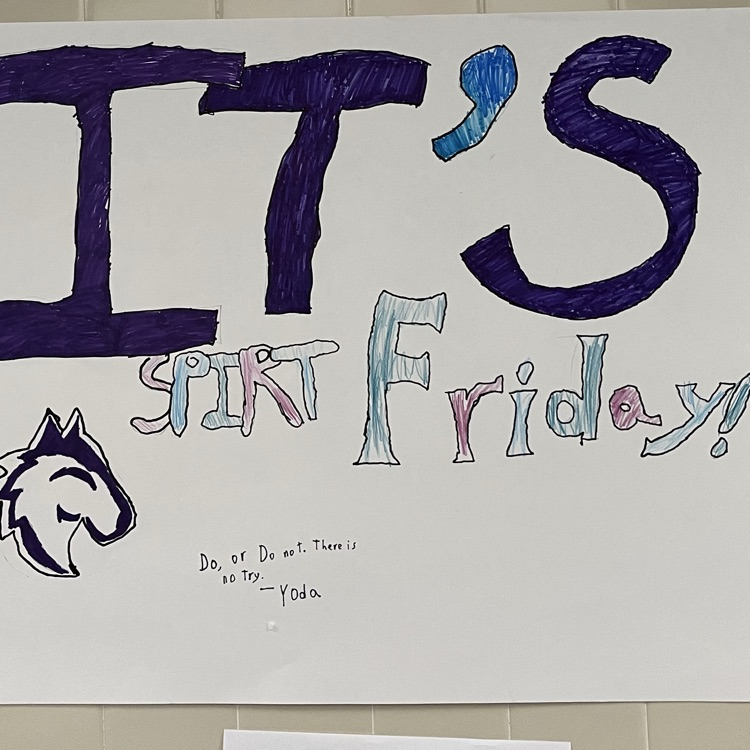 IT'S
SPIRT Friday!
Do, or Do not. There is
no try.
— Yoda